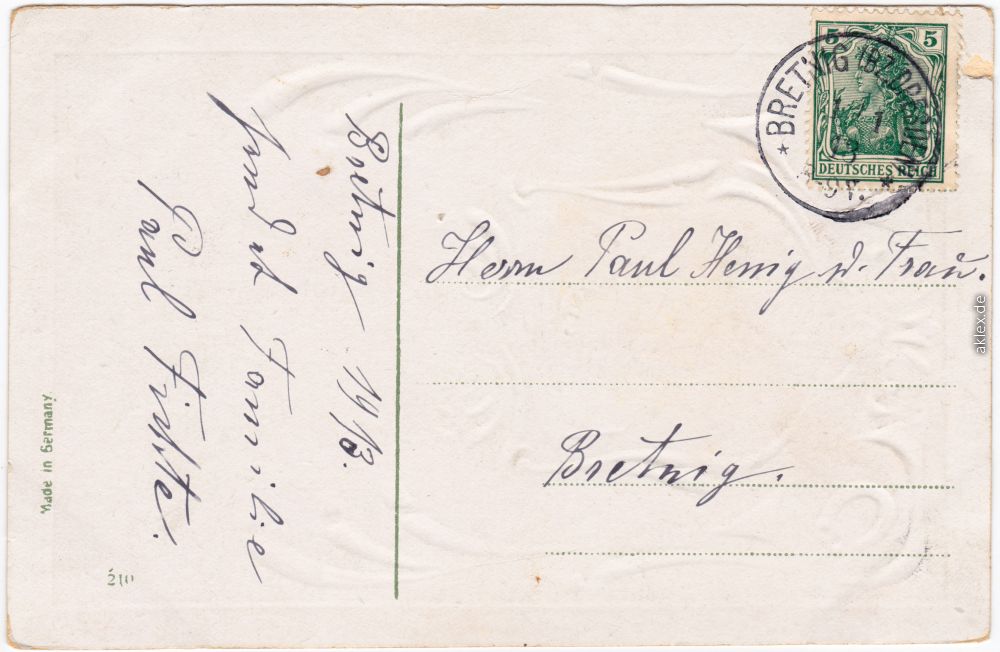 Bretnig 1913.
und Familie
Paul
Made in Germany
210
5 5
DEUTSCHES REICH
* BRETNIG (BZ. DRESDEN) *
Herrn Paul Henig u. Frau.
Bretnig.
aklex.de